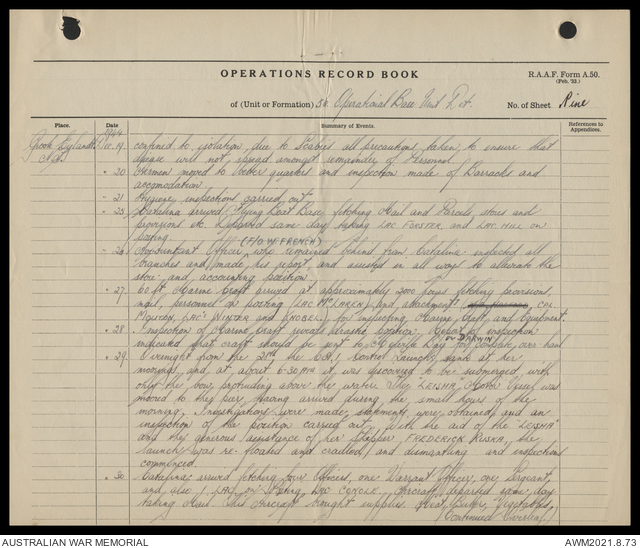 OPERATIONS RECORD BOOK
R.A.A.F. Form A.50.
(Feb. '22.)
of (Unit or Formation) 56 Operational Base Unit Det.
No. of Sheet Nine
Place.
Date
Summary of Events.
References to Appendices.
1944
Groote Eylandt Dec. 19. confined to isolation, due to Scabies all precautions taken to ensure that
N.T. disease will not spread amongst remainder of Personnel.
" 20 Airmen moved to quarters and inspection made of Barracks and
accomodation.
" 21 Hygiene inspections carried out.
" 25 Catalina arrived Flying Boat Base, fetching Mail and Parcels, stores and
provisions etc. Departed same day taking LAC FORSTER, and LAC. HILL on
posting.
(F/O W. FRENCH)
" 26 Accountant Officer who remained behind from Catalina inspected all
branches and made his report, and assisted in all ways to the
store and accounting position.
" 27 60 ft Marine Craft arrived at approximately 2000 hours fetching provisions,
mail, personnel on posting (LAC McLAREN) and attachment CPL
LAC'S WINTER and KNOBEL) for inspecting Marine Craft, and Equipment.
" 28 Inspection of Marine Craft reveals drastic position. Report of inspection
or DARWIN
indicated that craft should be sent to Melville Bay for complete over haul
" 29 Overnight from the 28th the 08.1, Control Launch, sank at her
moorings, and at about 6-30 AM it was discovered to be submerged, with
only the bow protruding above the water. The "LEISHA" Motor Vessel was
moored to the pier having arrived during the small hours of the
morning. Investigations were made, statements were obtained, and an
inspection of the position carried out. With the aid of the "LEISHA"
and the generous assistance of her Skipper, FREDERICK RUSKA, the
launch was re-floated and cradled, and dismantling and inspections
commenced.
" 30 Catalina arrived fetching four Officers, one Warrant Officer, one Sergeant,
and also 1 LAC on Posting, LAC CONGLE. Aircraft departed same day
taking Mail. This aircraft brought supplies Meat, Butter, Vegetables,
(Continued Overleaf)
AUSTRALIAN WAR MEMORIAL
AWM2021.8.73